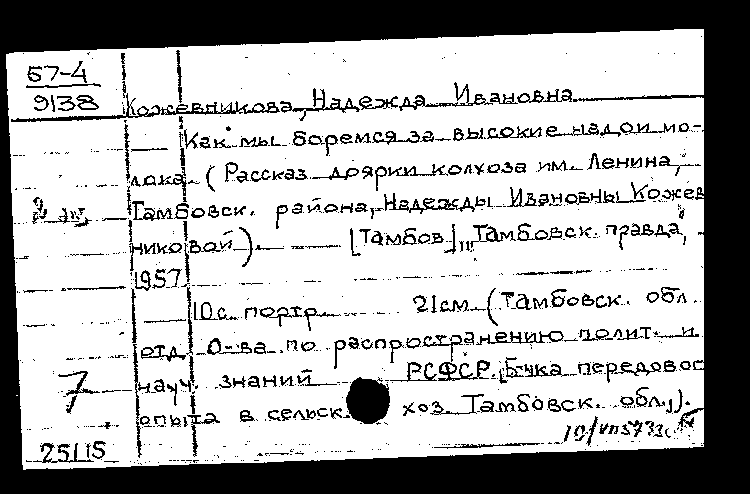 57-4
9138
Кожевникова, Надежда Ивановна
Как мы боремся за высокие надои мо-
лока. (Рассказ доярки колхоза им. Ленина,
2 эк.
Тамбовск. района, Надежды Ивановны Кожев
никовой). — [Тамбов], "Тамбовск. правда,"
1957
10 с. портр. 21 см. (Тамбовск. обл.
отд. О-ва по распространению полит. и
науч. знаний РСФСР. [Б-чка передовог
7
опыта в сельск. хоз. Тамбовск. обл.]).
25115